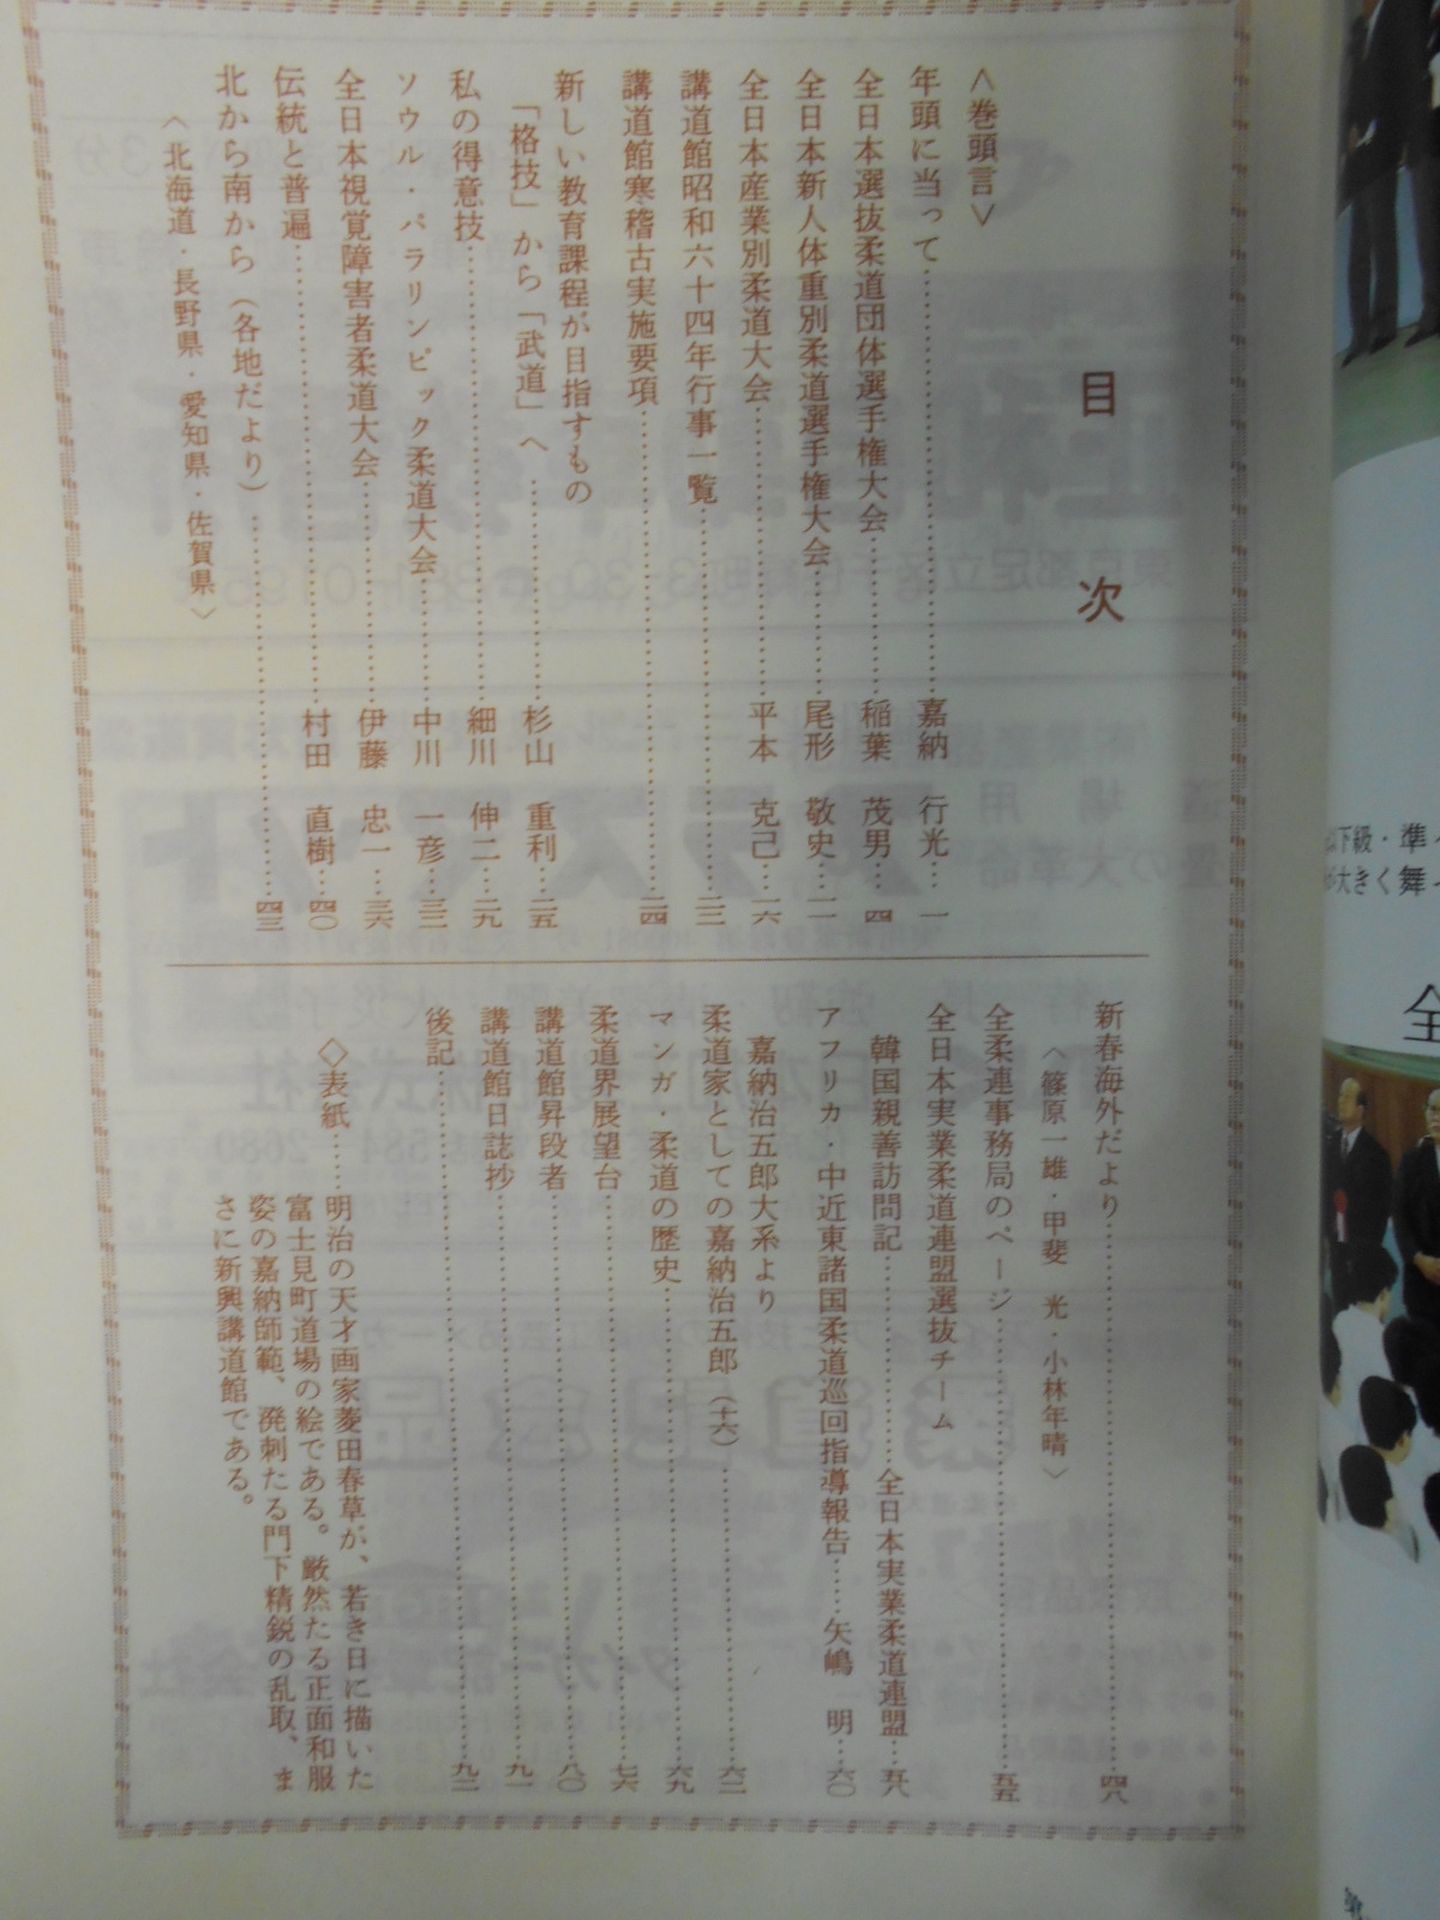 目次
＜巻頭言＞
年頭に当って……嘉納 行光…一
全日本選抜柔道団体選手権大会……稲葉 茂男…四
全日本新人体重別柔道選手権大会……尾形 敬史…一一
全日本産業別柔道大会……平本 克己…一六
講道館昭和六十四年行事一覧……二三
講道館寒稽古実施要項……二四
新しい教育課程が目指すもの
「格技」から「武道」へ……杉山 重利…二五
私の得意技……細川 伸二…二九
ソウル・パラリンピック柔道大会……中川 一彦…三三
全日本視覚障害者柔道大会……伊藤 忠一…三六
伝統と普遍……村田 直樹…四〇
北から南から（各地だより）……四三
〈北海道・長野県・愛知県・佐賀県〉
新春海外だより……四八
〈篠原一雄・甲斐 光・小林年晴〉
全柔連事務局のページ……五五
全日本実業柔道連盟選抜チーム
韓国親善訪問記……全日本実業柔道連盟…五八
アフリカ・中近東諸国柔道巡回指導報告……矢嶋 明…六〇
嘉納治五郎大系より
柔道家としての嘉納治五郎（十六）……六二
マンガ・柔道の歴史……六九
柔道界展望台……七六
講道館昇段者……八〇
講道館日誌抄……九一
後記……九二
◇表紙……明治の天才画家菱田春草が、若き日に描いた
富士見町道場の絵である。厳然たる正面和服
姿の嘉納師範、溌刺たる門下精鋭の乱取、ま
さに新興講道館である。
下級・準
大きく舞
全